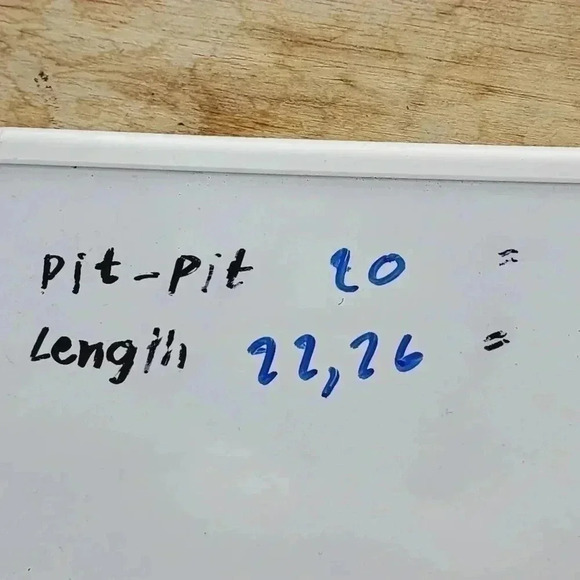 Pit-Pit 20 "
Length 22,26 "